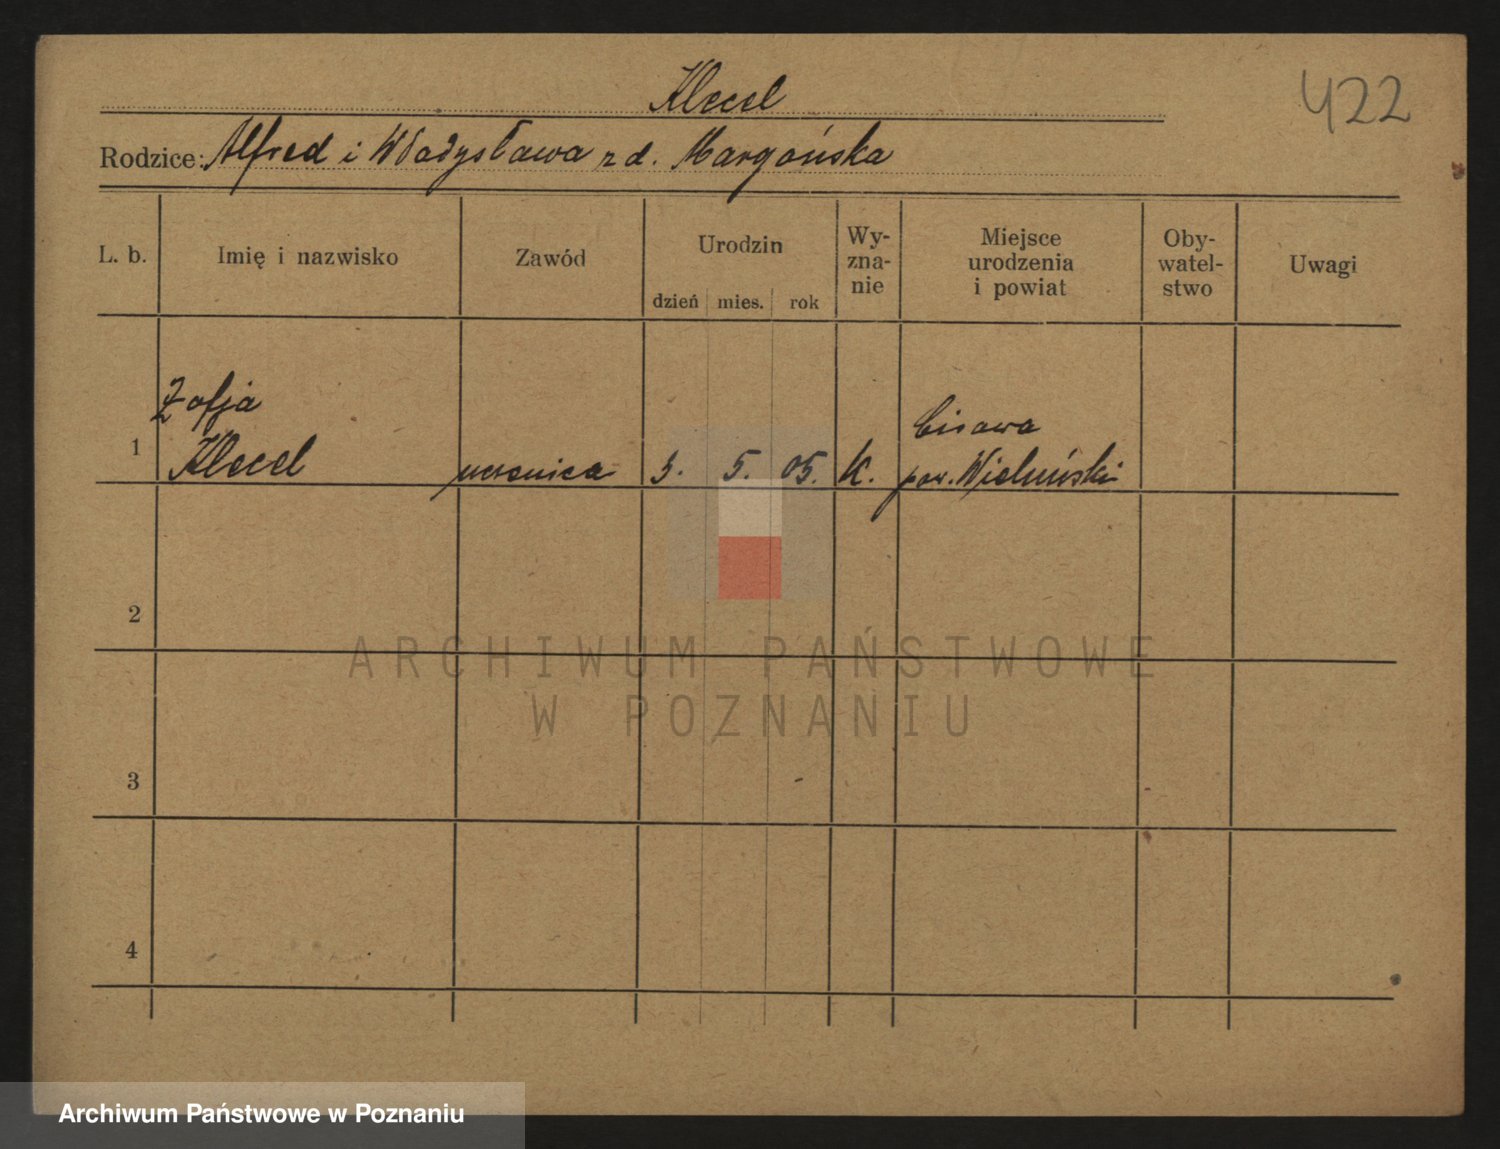 Klecel
422
Rodzice: Alfred i Władysława z d. Margońska
L. b.
Imię i nazwisko
Zawód
Urodzin
dzień mies. rok
Wy-
zna-
nie
Miejsce
urodzenia
i powiat
Oby-
watel-
stwo
Uwagi
1
Zofja
Klecel
uczenica
5. 05.
K.
Cisowa
pow. Wieluński
2
3
4
ARCHIWUM PAŃSTWOWE
W POZNANIU
Archiwum Państwowe w Poznaniu